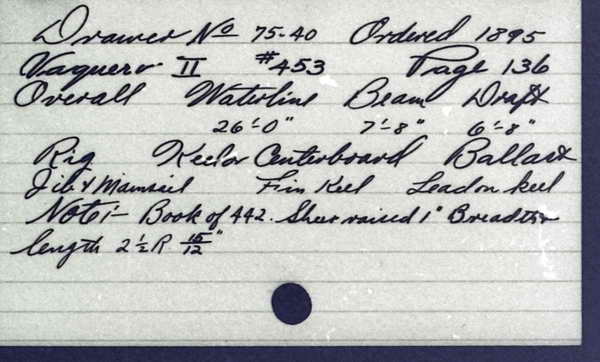 Drawer No 75-40 Ordered 1895
Vaquero II #453 Page 136
Overall Waterline Beam Draft
26'-0" 7'-8" 6'-8"
Rig Keel or Centerboard Ballast
Jib & Mainsail Fin Keel Lead on keel
Note:- Book of 442. Sheer raised 1" Breadth &
length 2 1/2 R 15/12"